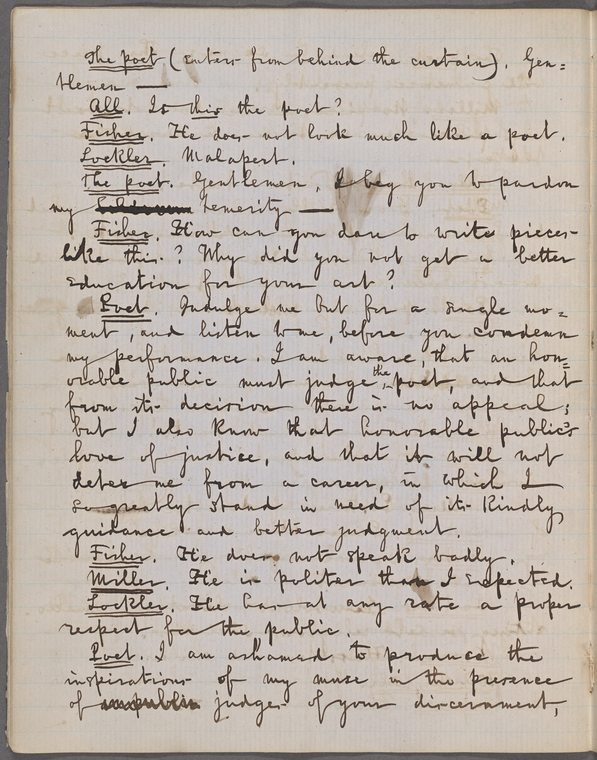 The poet (enters from behind the curtain). Gen=
tlemen —
All. Is this the poet?
Fisher. He does not look much like a poet.
Lockler. Malapert.
The poet. Gentlemen, I beg you to pardon
my temerity —
Fisher. How can you dare to write pieces
like this? Why did you not get a better
education for your art?
Poet. Indulge me but for a single mo=
ment, and listen to me, before you condemn
my performance. I am aware, that an hon=
orable public must judge the poet, and that
from its decision there is no appeal;
but I also know that honorable public's
love of justice, and that it will not
deter me from a career, in which I
so greatly stand in need of its kindly
guidance and better judgment.
Fisher. He does not speak badly.
Miller. He is politer than I expected.
Lockler. He has at any rate a proper
respect for the public.
Poet. I am ashamed to produce the
inspirations of my muse in the presence
of judges of your discernment,